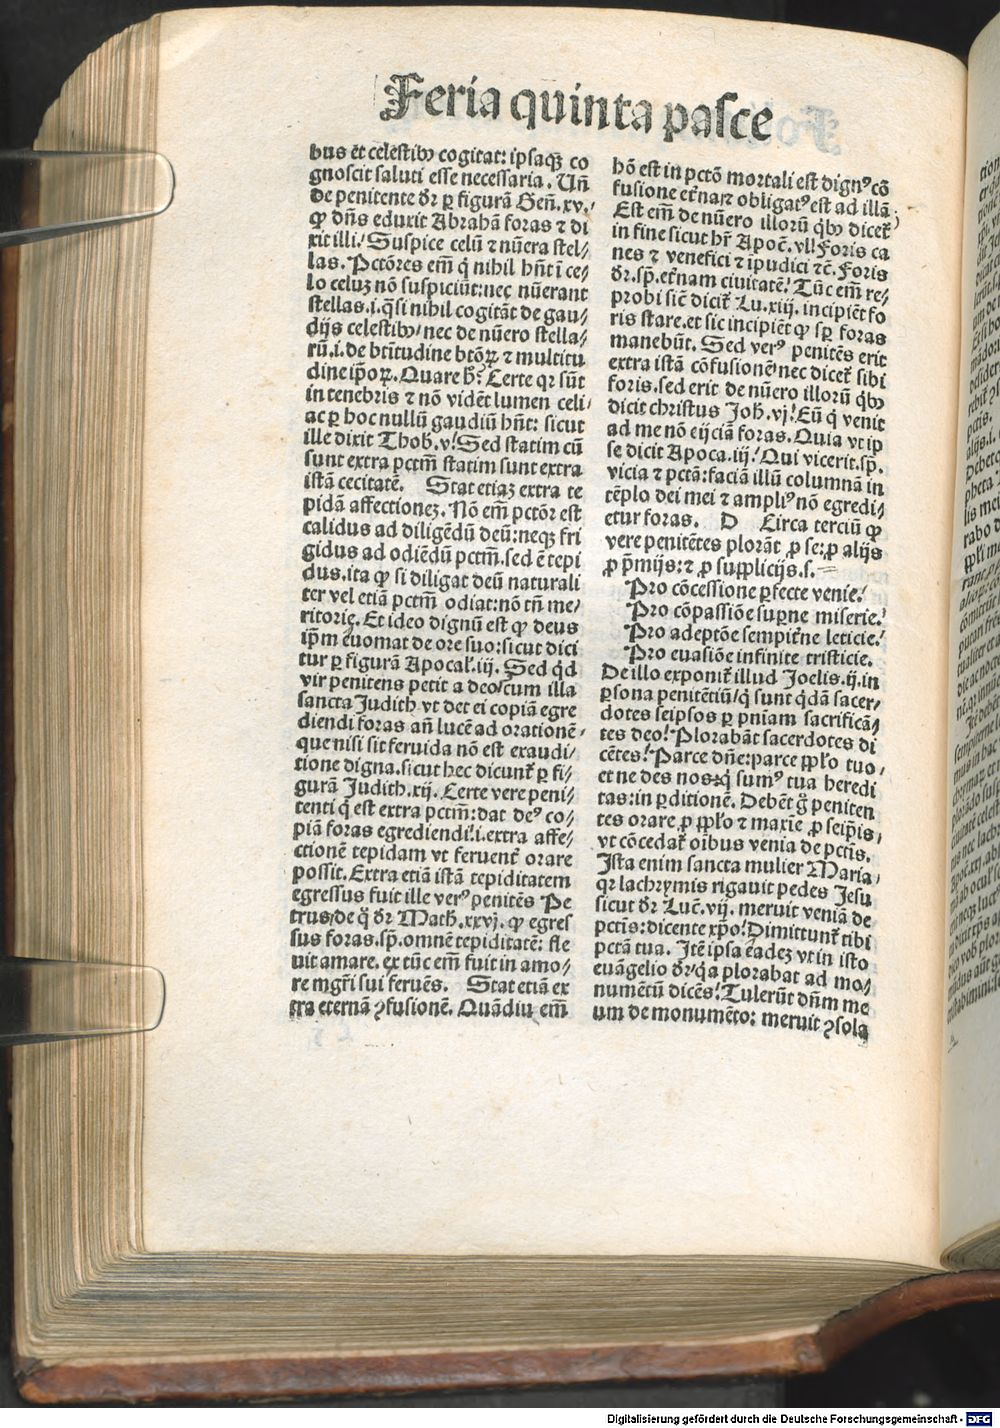 Feria quinta pasce
bus et̄ celestibꝰ cogitat: ipsaqꝫ co
gnoscit saluti esse necessaria. Un̄
de penitente dr̄ ꝑ figurā Gen̄. xv./
ꝙ dn̄s eduxit Abrahā foras ⁊ di
xit illi/ Suspice celū ⁊ nūera stel⸗
las. Pctōres em̄ q̇ nihil hn̄t ī ce⸗
lo celuꝫ nō suspiciūt: nec nūerant
stellas. i. q̇si nihil cogitāt de gau⸗
dijs celestibꝰ/ nec de nūero stella⸗
rū. i. de btītudine btōꝝ ⁊ multitu
dine ip̄oꝝ. Quare h̄? Certe qꝛ sūt
in tenebris ⁊ nō vidēt lumen celi⸗
ac ꝑ hoc nullū gaudiū hn̄t: sicut
ille dixit Thob. v/ Sed statim cū
sunt extra pctm̄ statim sunt extra
istā cecitatē. Stat etiaꝫ extra te
pidā affectioneꝫ. Nō em̄ pctōr est
calidus ad diligēdū deū: neqꝫ fri
gidus ad odiēdū pctm̄. sed ē tepi
dus. ita ꝙ si diligat deū naturali
ter vel etiā pctm̄ odiat: nō tn̄ me⸗
ritorie. Et ideo dignū est ꝙ deus
ip̄m euomat de ore suo: sicut dici
tur ꝑ figurā Apocal̄. iij. Sed q̇d
vir penitens petit a deo/ cum illa
sancta Judith vt det ei copiā egre
diendi foras an̄ lucē ad orationē⸗
que nisi sit feruida nō est exaudi⸗
tione digna. sicut hec dicunt̄ ꝑ fi⸗
gurā Judith. xij. Certe vere peni⸗
tenti q̇ est extra pctm̄: dat deꝰ co⸗
piā foras egrediendi. i. extra affe⸗
ctionē tepidam vt feruent̄ orare
possit. Extra etiā istā tepiditatem
egressus fuit ille verꝰ penitēs Pe
trus/ de q̊ dr̄ Math. xxvj. ꝙ egres
sus foras. sp̄. omnē tepiditatē: fle
uit amare. ex tūc em̄ fuit in amo⸗
re mgr̄i sui feruēs. Stat etiā ex
tra eternā ꝯfusionē. Quādiu em̄
hō est in pctō mortali est dignꝰ cō
fusione et̄naꝫ ⁊ obligatꝰ est ad illā.
Est em̄ de nūero illorū qꝫ dicet̄
in fine sicut hr̄ Apoc̄. vl̄/ Foris ca
nes ⁊ venefici ⁊ īpudici ⁊c̄. Foris
dr̄. sp̄. et̄nam ciuitatē/ Tūc em̄ re⸗
probi sic̄ dicit̄ Lu. xiij. incipiēt fo
ris stare. et sic incipiēt ꝙ sꝑ foras
manebūt. Sed verꝰ penitēs erit
extra istā cōfusionē/ nec dicet̄ sibi
foris. sed erit de nūero illorū qꝫ
dicit christus Joh. vj/ Eū q̇ venit
ad me nō eijciā foras. Quia vt ip
se dicit Apoca. iij/ Qui vicerit. sp̄.
vicia ⁊ pctā: faciā illū columnā in
tēplo dei mei ⁊ ampliꝰ nō egredi⸗
etur foras. D Circa terciū ꝙ
vere penitētes plorāt ꝓ se: ꝓ alijs
ꝓ p̄mijs: ⁊ ꝓ supplicijs. s.
Pro cōcessione ꝑfecte venie.
Pro cōpassiōe suꝑne miserie.
Pro adeptōe sempit̄ne leticie.
Pro euasiōe infinite tristicie.
De illo exponit̄ illud Joelis. ij. in
ꝑsona penitētiū/ q̇ sunt q̇dā sacer⸗
dotes seipsos ꝑ pn̄iam sacrificā⸗
tes deo/ Plorabāt sacerdotes di
cētes/ Parce dn̄e: parce pp̄lo tuo/
et ne des nos: q̇ sumꝰ tua heredi
tas: in ꝑditionē. Debēt g̊ peniten
tes orare ꝓ pp̄lo ⁊ maxīe ꝓ seip̄is/
vt cōcedat̄ oībus venia de pctīs.
Ista enim sancta mulier Maria/
qꝛ lachrymis rigauit pedes Jesu
sicut dr̄ Luc̄. vij. meruit veniā de
pctīs: dicente xp̄o/ Dimittunt̄ tibi
pctā tua. Itē ipsa eadeꝫ vt in isto
euāgelio dr̄/ q̇a plorabat ad mo⸗
numētū dicēs/ Tulerūt dn̄m me
um de monumēto: meruit ꝯsola
Digitalisierung gefördert durch die Deutsche Forschungsgemeinschaft - DFG